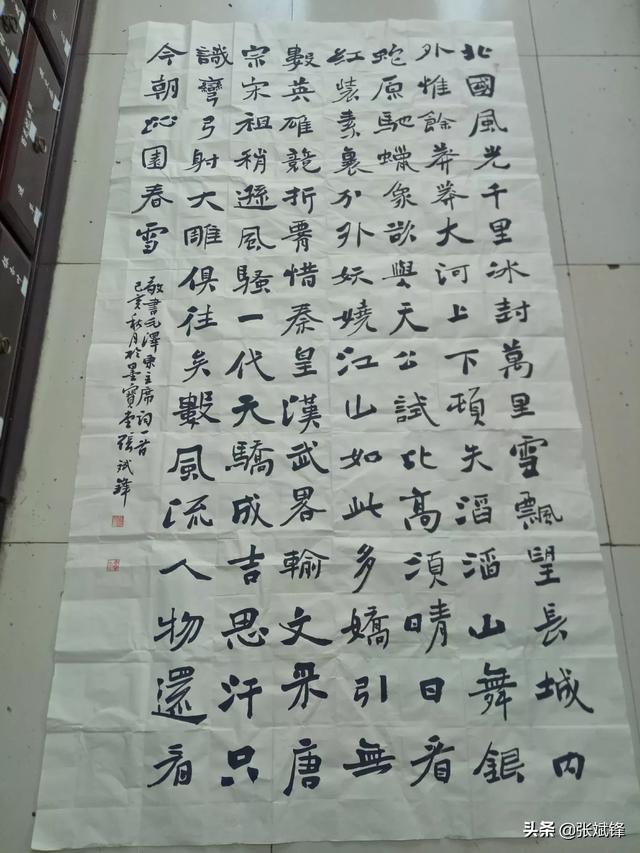 北國風光千里冰封萬里雪飄望長城內
外惟餘莽莽大河上下頓失滔滔山舞銀
蛇原馳蠟象欲與天公試比高須晴日看
紅裝素裹分外妖嬈江山如此多嬌引無
數英雄競折腰惜秦皇漢武畧輸文采唐
宗宋祖稍遜風騷一代天驕成吉思汗只
識彎弓射大雕俱往矣數風流人物還看
今朝沁園春雪
敬書毛澤東主席詞一首
己亥秋月於墨寶堂張斌鋒
头条 @张斌锋